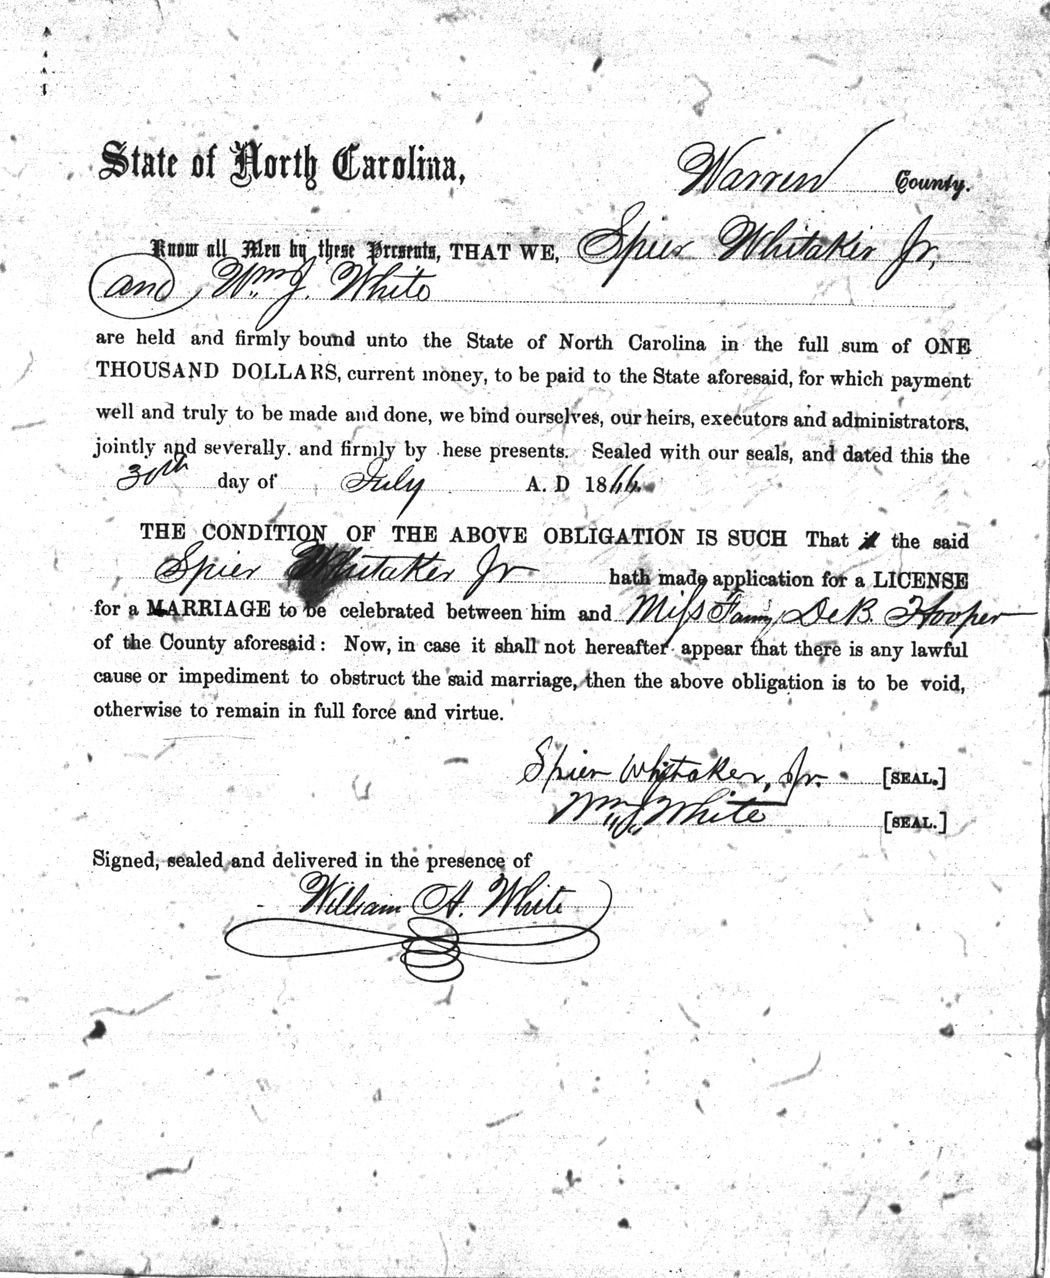 State of North Carolina, Warren County.
Know all Men by these Presents, THAT WE, Spier Whitaker Jr,
and Wm J. White
are held and firmly bound unto the State of North Carolina in the full sum of ONE
THOUSAND DOLLARS, current money, to be paid to the State aforesaid, for which payment
well and truly to be made and done, we bind ourselves, our heirs, executors and administrators,
jointly and severally. and firmly by hese presents. Sealed with our seals, and dated this the
30th day of July A. D 1866.
THE CONDITION OF THE ABOVE OBLIGATION IS SUCH That the said
Spier Whitaker Jr hath made application for a LICENSE
for a MARRIAGE to be celebrated between him and Miss Fanny DeB. Hooper
of the County aforesaid: Now, in case it shall not hereafter appear that there is any lawful
cause or impediment to obstruct the said marriage, then the above obligation is to be void,
otherwise to remain in full force and virtue.
Spier Whitaker, Jr. [SEAL.]
Wm J. White [SEAL.]
Signed, sealed and delivered in the presence of
William A. White